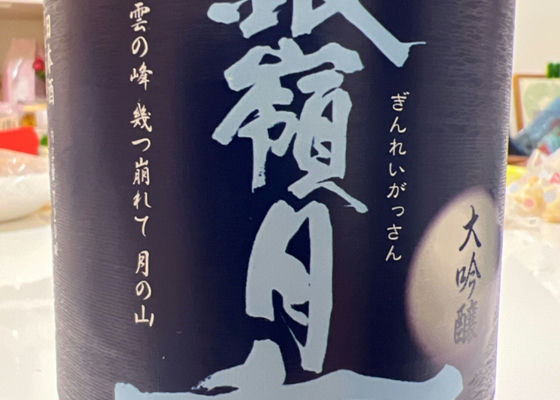 銀嶺月山
ぎんれいがっさん
大吟醸
雲の峰 幾つ崩れて 月の山
日本酒